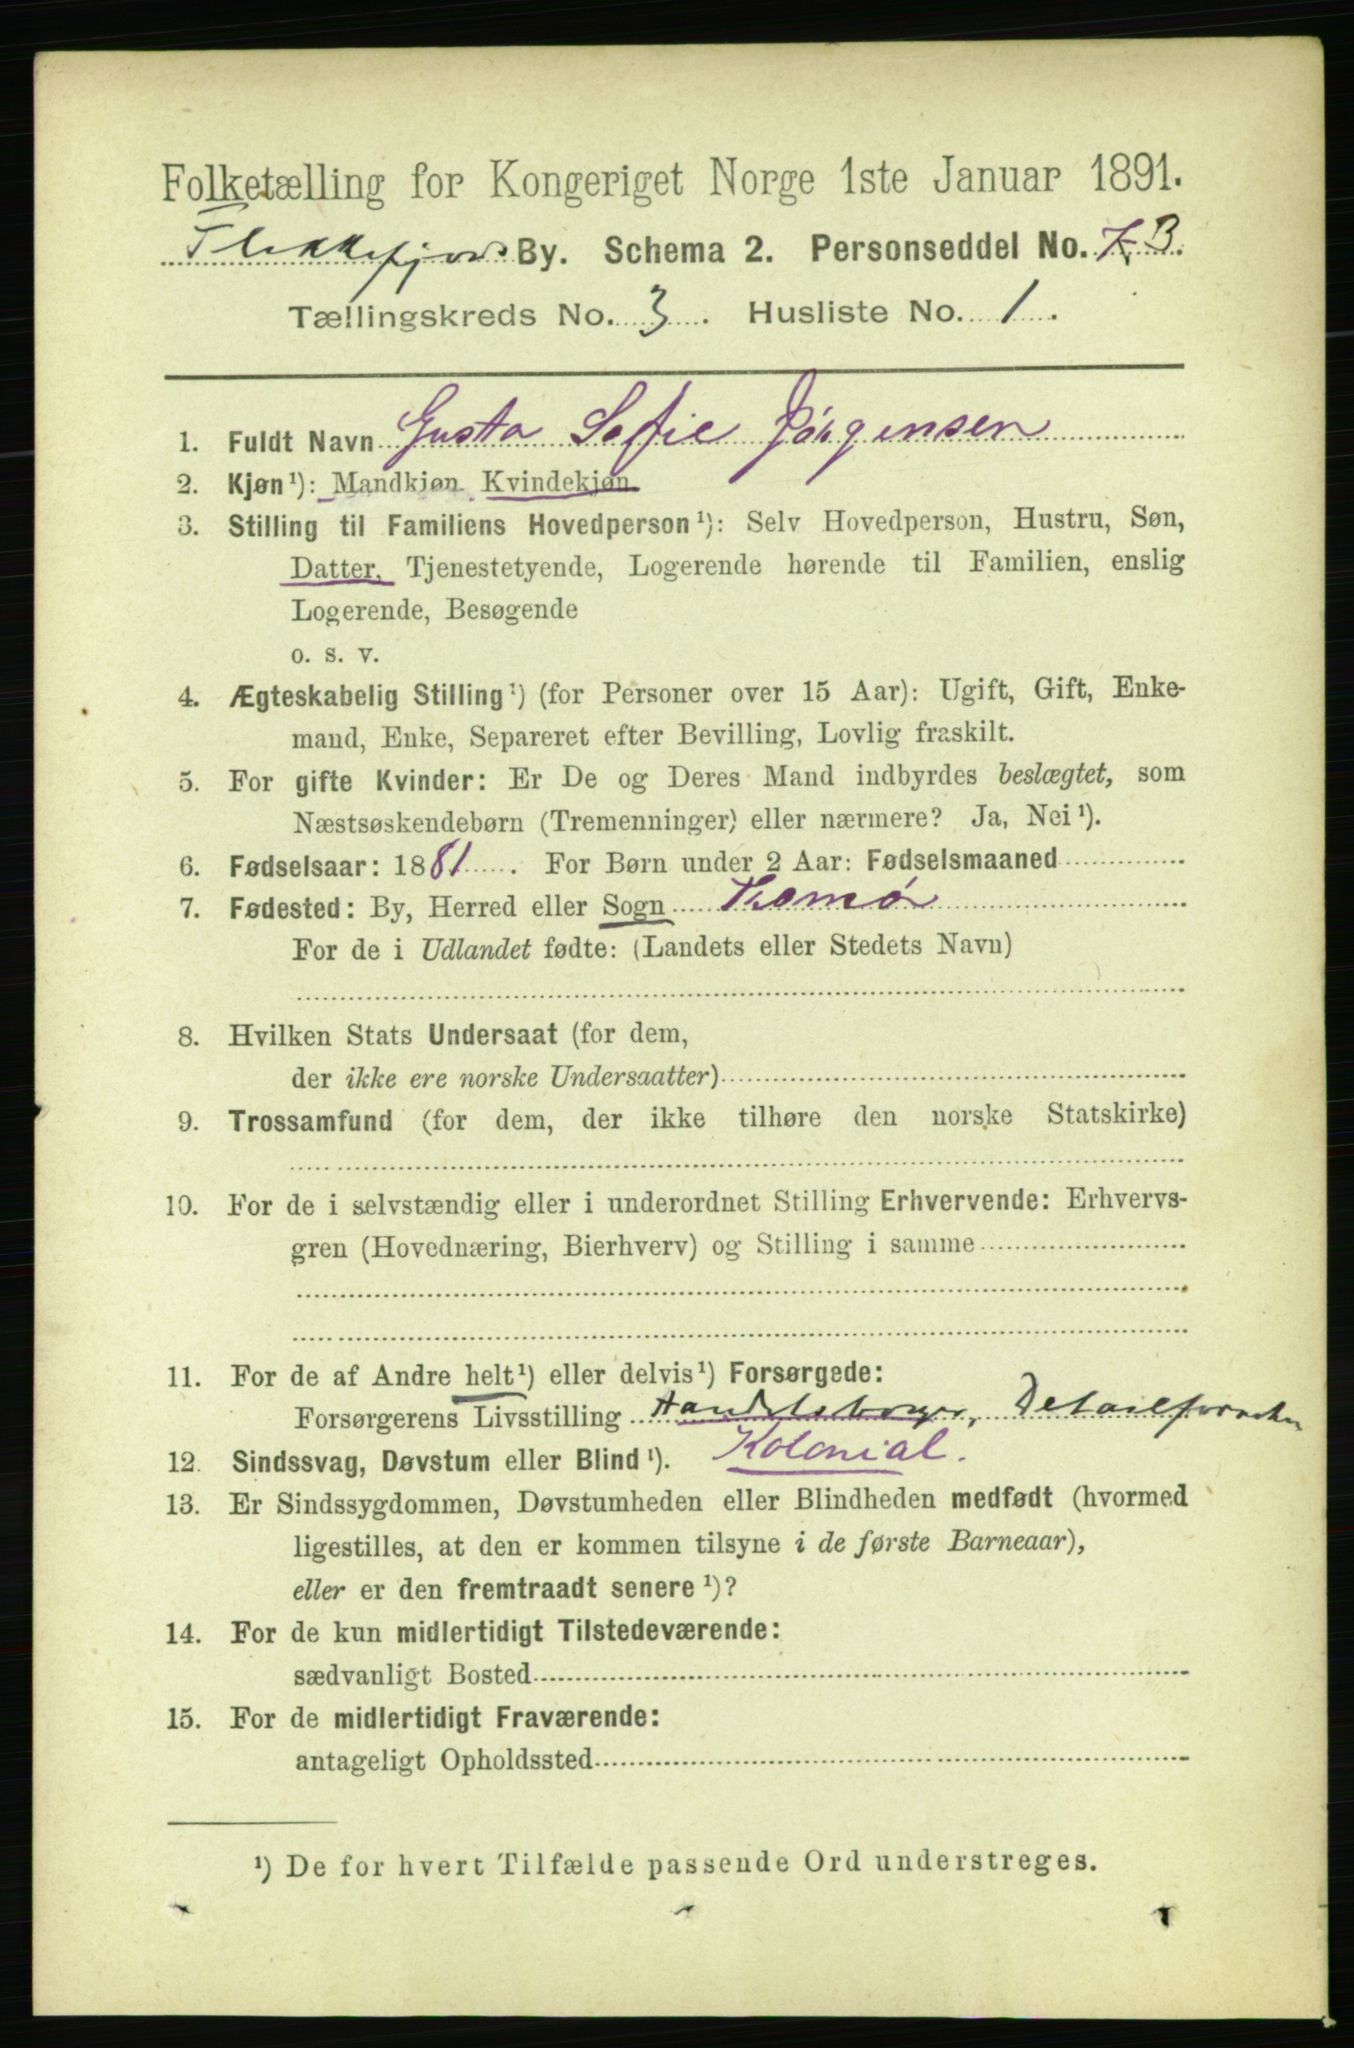 Folketælling for Kongeriget Norge 1ste Januar 1891.
Flekkefjords By. Schema 2. Personseddel No. 7 B.
Tællingskreds No. 3. Husliste No. 1.
1. Fuldt Navn Gusta Sofie Jørgensen
2. Kjøn¹): Mandkjøn. Kvindekjøn.
3. Stilling til Familiens Hovedperson¹): Selv Hovedperson, Hustru, Søn,
Datter, Tjenestetyende, Logerende hørende til Familien, enslig
Logerende, Besøgende
o. s. v.
4. Ægteskabelig Stilling¹) (for Personer over 15 Aar): Ugift, Gift, Enke-
mand, Enke, Separeret efter Bevilling, Lovlig fraskilt.
5. For gifte Kvinder: Er De og Deres Mand indbyrdes beslægtet, som
Næstsøskendebørn (Tremenninger) eller nærmere? Ja, Nei¹).
6. Fødselsaar: 1881. For Børn under 2 Aar: Fødselsmaaned
7. Fødested: By, Herred eller Sogn Tromø
For de i Udlandet fødte: (Landets eller Stedets Navn)
8. Hvilken Stats Undersaat (for dem,
der ikke ere norske Undersaatter)
9. Trossamfund (for dem, der ikke tilhøre den norske Statskirke)
10. For de i selvstændig eller i underordnet Stilling Erhvervende: Erhvervs-
gren (Hovednæring, Bierhverv) og Stilling i samme
11. For de af Andre helt¹) eller delvis¹) Forsørgede:
Forsørgerens Livsstilling Handelsborger,
12. Sindssvag, Døvstum eller Blind¹). Kolonial.
13. Er Sindssygdommen, Døvstumheden eller Blindheden medfødt (hvormed
ligestilles, at den er kommen tilsyne i de første Barneaar),
eller er den fremtraadt senere¹)?
14. For de kun midlertidigt Tilstedeværende:
sædvanligt Bosted
15. For de midlertidigt Fraværende:
antageligt Opholdssted
¹) De for hvert Tilfælde passende Ord understreges.